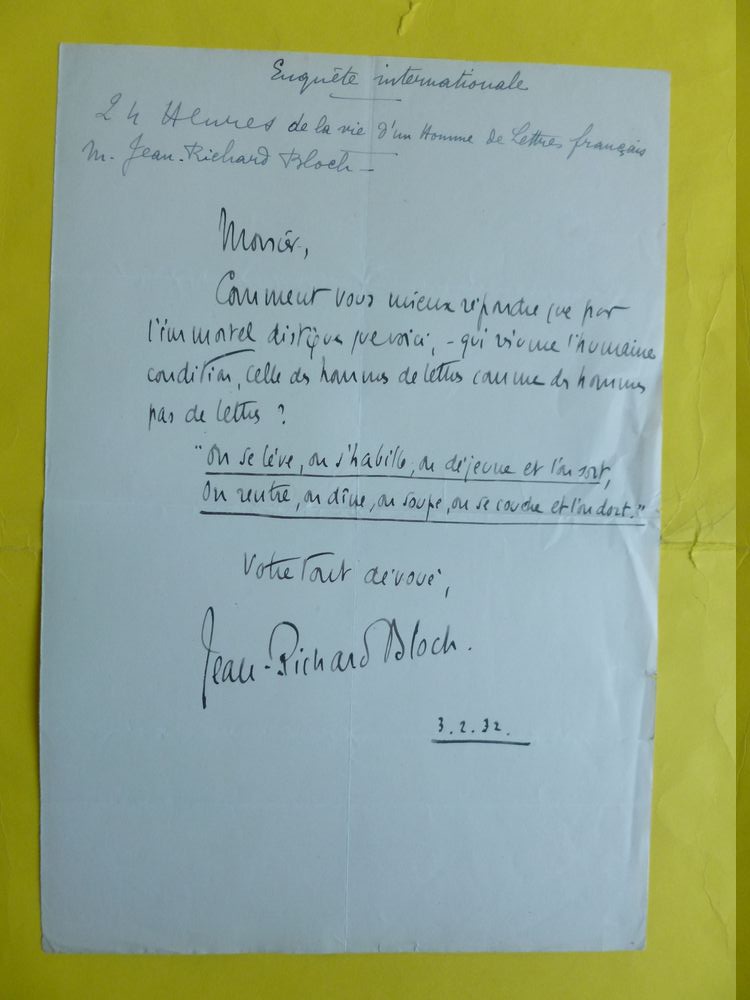 Enquête internationale
24 Heures de la vie d'un Homme de Lettres français
M. Jean-Richard Bloch -
Monsieur,
Comment vous mieux répondre que par
l'immortel distique que voici, - qui résume l'humaine
condition, celle des hommes de lettres comme des hommes
pas de lettres ?
"On se lève, on s'habille, on déjeune et l'on sort,
On rentre, on dîne, on soupe, on se couche et l'on dort."
Votre tout dévoué,
Jean-Richard Bloch.
3.2.32.